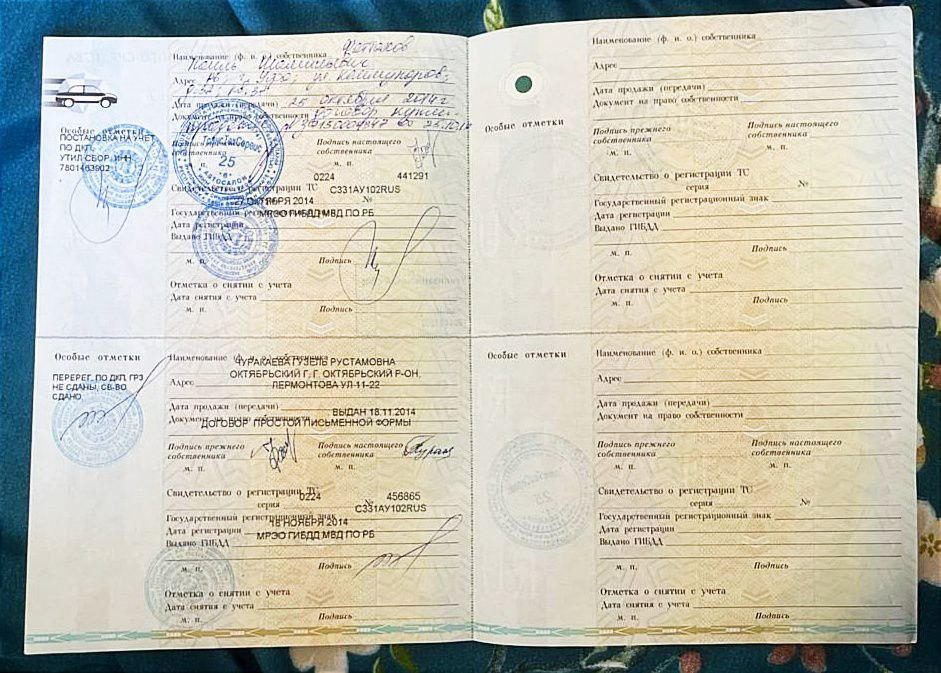 Наименование (ф. и. о.) собственника Фаттахов
Наиль Шамильевич
Адрес РБ, г. Уфа, ул. Коммунаров,
Дата продажи (передачи) 25 октября 2014г
Документ на право собственности договор купли-
25.10.14
Особые отметки
ПОСТАНОВКА НА УЧЕТ
ПО ДКП,
УТИЛ СБОР, ИНН
7801463902
Подпись прежнего собственника
Подпись настоящего собственника
м. п.
м. п.
ТрансТехСервис
25
"6"
АВТОСАЛОН
Свидетельство о регистрации ТС
0224 441291
С331АУ102RUS
Государственный регистрационный знак
ОКТЯБРЯ 2014
Дата регистрации
МРЭО ГИБДД МВД ПО РБ
Выдано ГИБДД
м. п. Подпись
Отметка о снятии с учета
Дата снятия с учета
м. п. Подпись
Особые отметки
ПЕРЕРЕГ. ПО ДКП, ГРЗ
НЕ СДАНЫ, СВ-ВО
СДАНО
Наименование (ф. и. о.) собственника
ЧУРАКАЕВА ГУЗЕЛЬ РУСТАМОВНА
ОКТЯБРЬСКИЙ Г, Г. ОКТЯБРЬСКИЙ Р-ОН,
Адрес ЛЕРМОНТОВА УЛ 11-22
Дата продажи (передачи)
ВЫДАН 18.11.2014
Документ на право собственности
ДОГОВОР ПРОСТОЙ ПИСЬМЕННОЙ ФОРМЫ
Подпись прежнего собственника
Подпись настоящего собственника
м. п.
м. п.
Свидетельство о регистрации ТС
серия 0224 № 456865
С331АУ102RUS
Государственный регистрационный знак
18 НОЯБРЯ 2014
Дата регистрации
МРЭО ГИБДД МВД ПО РБ
Выдано ГИБДД
м. п. Подпись
Отметка о снятии с учета
Дата снятия с учета
м. п. Подпись
Особые отметки
Наименование (ф. и. о.) собственника
Адрес
Дата продажи (передачи)
Документ на право собственности
Подпись прежнего собственника
Подпись настоящего собственника
м. п.
м. п.
Свидетельство о регистрации ТС
серия №
Государственный регистрационный знак
Дата регистрации
Выдано ГИБДД
м. п. Подпись
Отметка о снятии с учета
Дата снятия с учета
м. п. Подпись
Особые отметки
Наименование (ф. и. о.) собственника
Адрес
Дата продажи (передачи)
Документ на право собственности
Подпись прежнего собственника
Подпись настоящего собственника
м. п.
м. п.
25
Свидетельство о регистрации ТС
серия №
Государственный регистрационный знак
Дата регистрации
Выдано ГИБДД
м. п. Подпись
Отметка о снятии с учета
Дата снятия с учета
м. п. Подпись